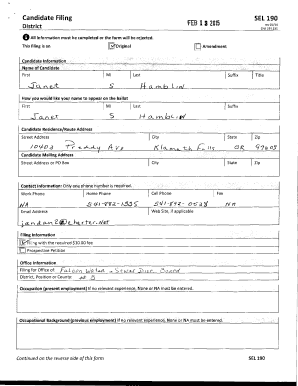 Candidate Filing
District
FEB 13 2015
SEL 190
All information must be completed or the form will be rejected.
This filing is an
Original
Amendment
Candidate Information
Name of Candidate
First MI Last Suffix Title
Janet S Hamblin
How you would like your name to appear on the ballot
First MI Last Suffix
Janet S Hamblin
Candidate Residence/Route Address
Street Address City State Zip
Ave Klamath Falls OR 97603
Candidate Mailing Address
Street Address or PO Box City State Zip
Contact Information Only one phone number is required.
Work Phone Home Phone Cell Phone Fax
NA 541-882-1335 541-892-0528 NA
Email Address Web Site, if applicable
Filing Information
Filing with the required $10.00 fee.
Prospective Petition
Office Information
Filing for Office of
District, Position or County
Occupation (present employment) If no relevant experience, None or NA must be entered.
Occupational Background (previous employment) If no relevant experience, None or NA must be entered.
Continued on the reverse side of this form SEL 190